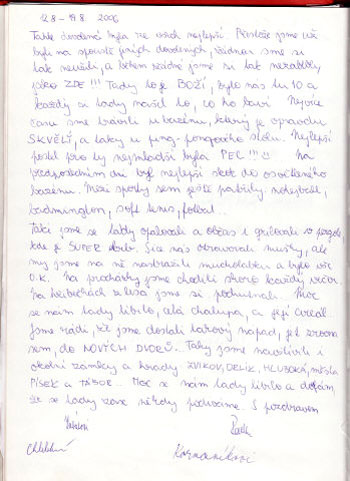 12.8 - 19.8 2006
Tahle dovolená byla ze všech nejlepší. Přestože jsme už
byli na spoustě jiných dovolených, žádnou jsme si
tak neužili, a během žádné jsme si tak nezablbli,
jako ZDE!!! Tady to je BOŽÍ, bylo nás tu 10 a
každý si tady našel to, co ho baví. Nejvíce
času sme trávili u bazénu, který je opravdu
SKVĚLÝ, a taky u ping-pongového stolu. Nejlepší
postel pro ty nejmladší byla PEC!!! Na
předposledním dni byl nejlepší skok do osvětleného
bazénu. Mezi sporty sem ještě patřily: nohejbal,
badmington, soft tenis, fotbal..
Také jsme se tady opalovali a občas i grilovali v pergole,
kde je SUPER Sice nás otravovali mušky, ale
my jsme na ně nastražili mucholapku a bylo vše
O.K. Na procházky jsme chodili skoro každý večer.
Na si pochutnali. Moc
se nám tady líbilo, celá chalupa, a její areál.
Jsme rádi, že jsme dostali takový nápad, jet zrovna
sem, do NOVÝCH DVORŮ. Taky jsme navštívili i
okolní zámky a hrady ZVÍKOV, ORLÍK, HLUBOKÁ, města
PÍSEK a TÁBOR.. Moc se nám tady líbilo a doufám,
že se tady zase někdy podíváme. S pozdravem